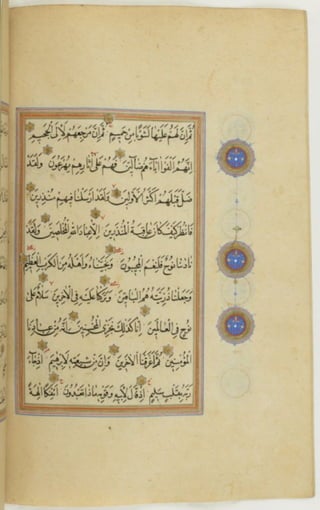 ثم ان لهم عليها لشوبا من حميم ثم ان مرجعهم لالى الجحيم
انهم الفوا اباءهم ضالين فهم على اثارهم يهرعون ولقد
ضل قبلهم اكثر الاولين ولقد ارسلنا فيهم منذرين
فانظر كيف كان عاقبة المنذرين الا عباد الله المخلصين ولقد
نادينا نوح فلنعم المجيبون ونجيناه واهله من الكرب العظيم
وجعلنا ذريته هم الباقين وتركنا عليه في الاخرين سلام على
نوح في العالمين انا كذلك نجزي المحسنين انه من عبادنا
المؤمنين ثم اغرقنا الاخرين وان من شيعته لابرهيم اذ جاء
ربه بقلب سليم اذ قال لابيه وقومه ماذا تعبدون ائفكا الهة